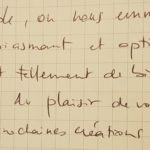 de, on nous emm
iasmant et opti
t tellement de bi
du plaisir de vo
prochaines créations